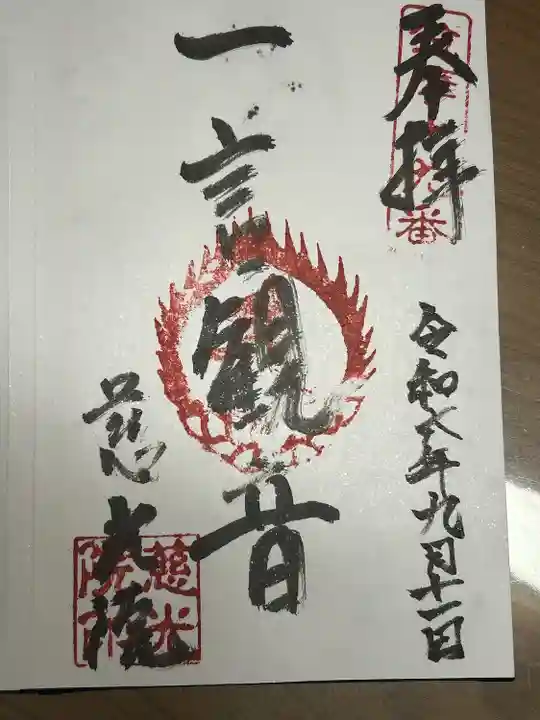 奉拝
令和六年九月十一日
一言観音
慈光院